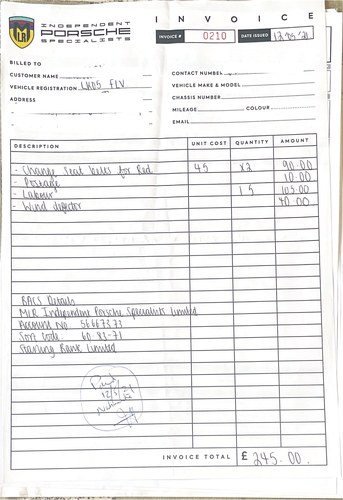 INDEPENDENT
PORSCHE
SPECIALISTS
INVOICE
INVOICE # 0210 DATE ISSUED 12/05/21
BILLED TO
CUSTOMER NAME
VEHICLE REGISTRATION LK05 FLV
ADDRESS
CONTACT NUMBER
VEHICLE MAKE & MODEL
CHASSIS NUMBER
MILEAGE COLOUR
EMAIL
DESCRIPTION UNIT COST QUANTITY AMOUNT
- Change Seat belts for Red 45 x2 90.00
- Postage 10.00
- Labour 1.5 105.00
- Wind deflector 40.00
BACS Details
MLR Independent Porsche Specialists Limited
Account No. 56667373
Sort Code. 60-83-71
Starling Bank Limited
Paid
12/5/21
INVOICE TOTAL £ 245.00